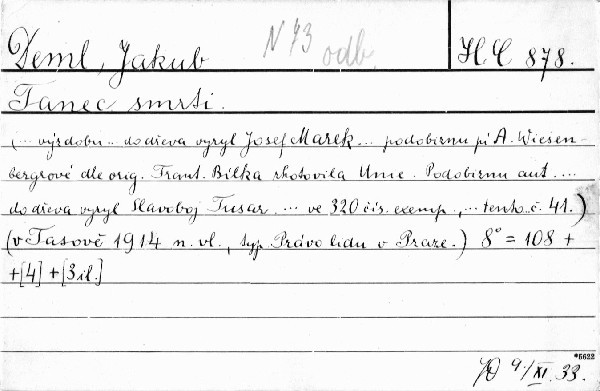 Deml, Jakub N 73 odb. H.C 878.
Tanec smrti.
(... výzdobu .. do dřeva vyryl Josef Marek ... podobiznu pí A. Wiesen-
bergrové dle orig. Frant. Bílka zhotovila Unie. Podobiznu aut. ...
do dřeva vyryl Slavoboj Tusar. ... ve 320 čís. exemp., ... tento č. 41.)
(v Tasově 1914 n. vl., typ. Právo lidu v Praze.) 8° = 108 +
+[4] + [3 il.]
*6622
9./XI. 33.